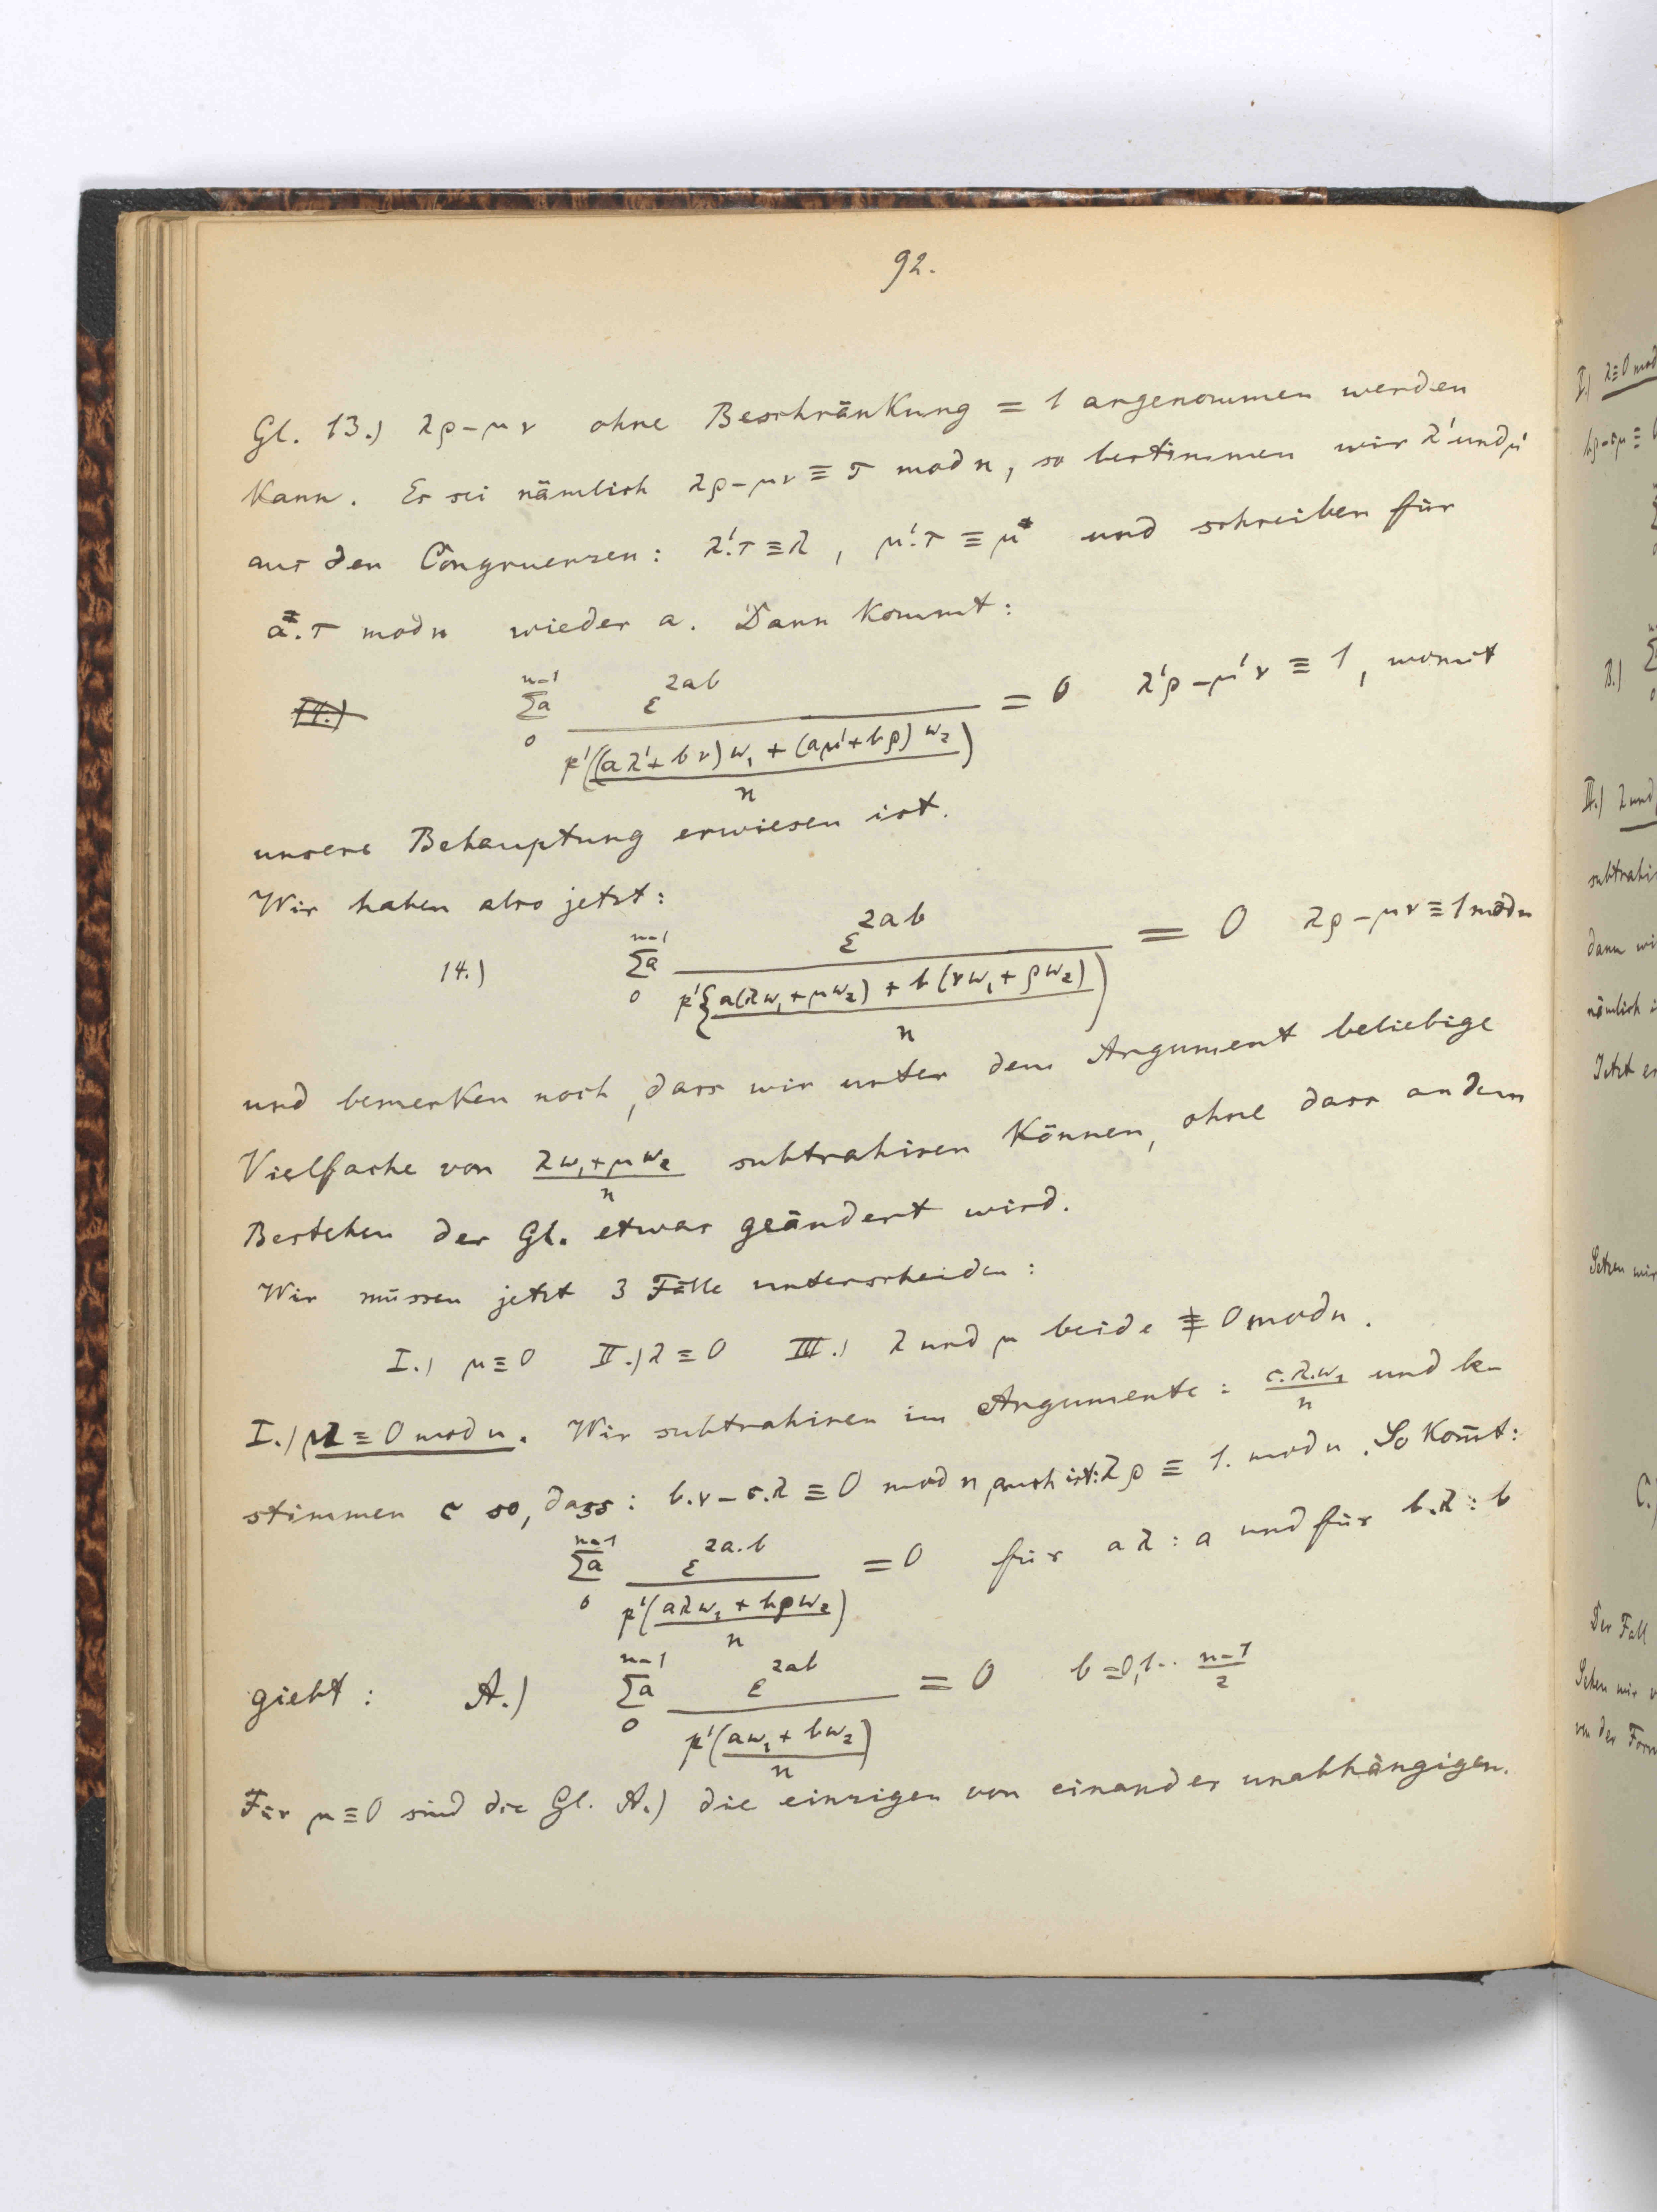 92.
Gl. 13.) λρ-μν ohne Beschränkung = 1 angenommen werden
kann. Es sei nämlich λρ-μν ≡ τ mod n, so bestimmen wir λ' und μ'
aus den Congruenzen: λ'.τ ≡ λ, μ'.τ ≡ μ und schreiben für
a.τ mod n wieder a. Dann kommt:
14.) \sum_{0}^{n-1}{}_a \frac{ε^{2ab}}{p'\left(\frac{(aλ'+bν)w_1+(aμ'+bρ)w_2}{n}\right)} = 0 λ'ρ-μ'ν ≡ 1, womit
unsere Behauptung erwiesen ist.
Wir haben also jetzt:
14.) \sum_{0}^{n-1}{}_a \frac{ε^{2ab}}{p'\left\{\frac{a(λw_1+μw_2)+b(νw_1+ρw_2)}{n}\right)} = 0 λρ-μν ≡ 1 mod n
und bemerken noch, dass wir unter dem Argument beliebige
Vielfache von \frac{λw_1+μw_2}{n} subtrahiren können, ohne dass an dem
Bestehen der Gl. etwas geändert wird.
Wir müssen jetzt 3 Fälle unterscheiden:
I.) μ ≡ 0 II.) λ ≡ 0 III.) λ und μ beide ≢ 0 mod n.
I.) μ ≡ 0 mod n. Wir subtrahiren im Argumente: \frac{c.λ.w_1}{n} und be-
stimmen c so, dass: b.ν-c.λ ≡ 0 mod n, auch ist: λρ ≡ 1. mod n. So kom̄t:
\sum_{0}^{n-1}{}_a \frac{ε^{2a.b}}{p'\left(\frac{aλw_1+bρw_2}{n}\right)} = 0 für aλ: a und für b.λ: b
giebt: A.) \sum_{0}^{n-1}{}_a \frac{ε^{2ab}}{p'\left(\frac{aw_1+bw_2}{n}\right)} = 0 b=0,1.. \frac{n-1}{2}
Für μ ≡ 0 sind die Gl. A.) die einzigen von einander unabhängigen.
I.) λ≡0 mod
B.)
III.) λ und
subtrahi
dann wi
nämlich i
Jetzt er
Setzen wir
C.)
Der Fall
Setzen wir
von der Form